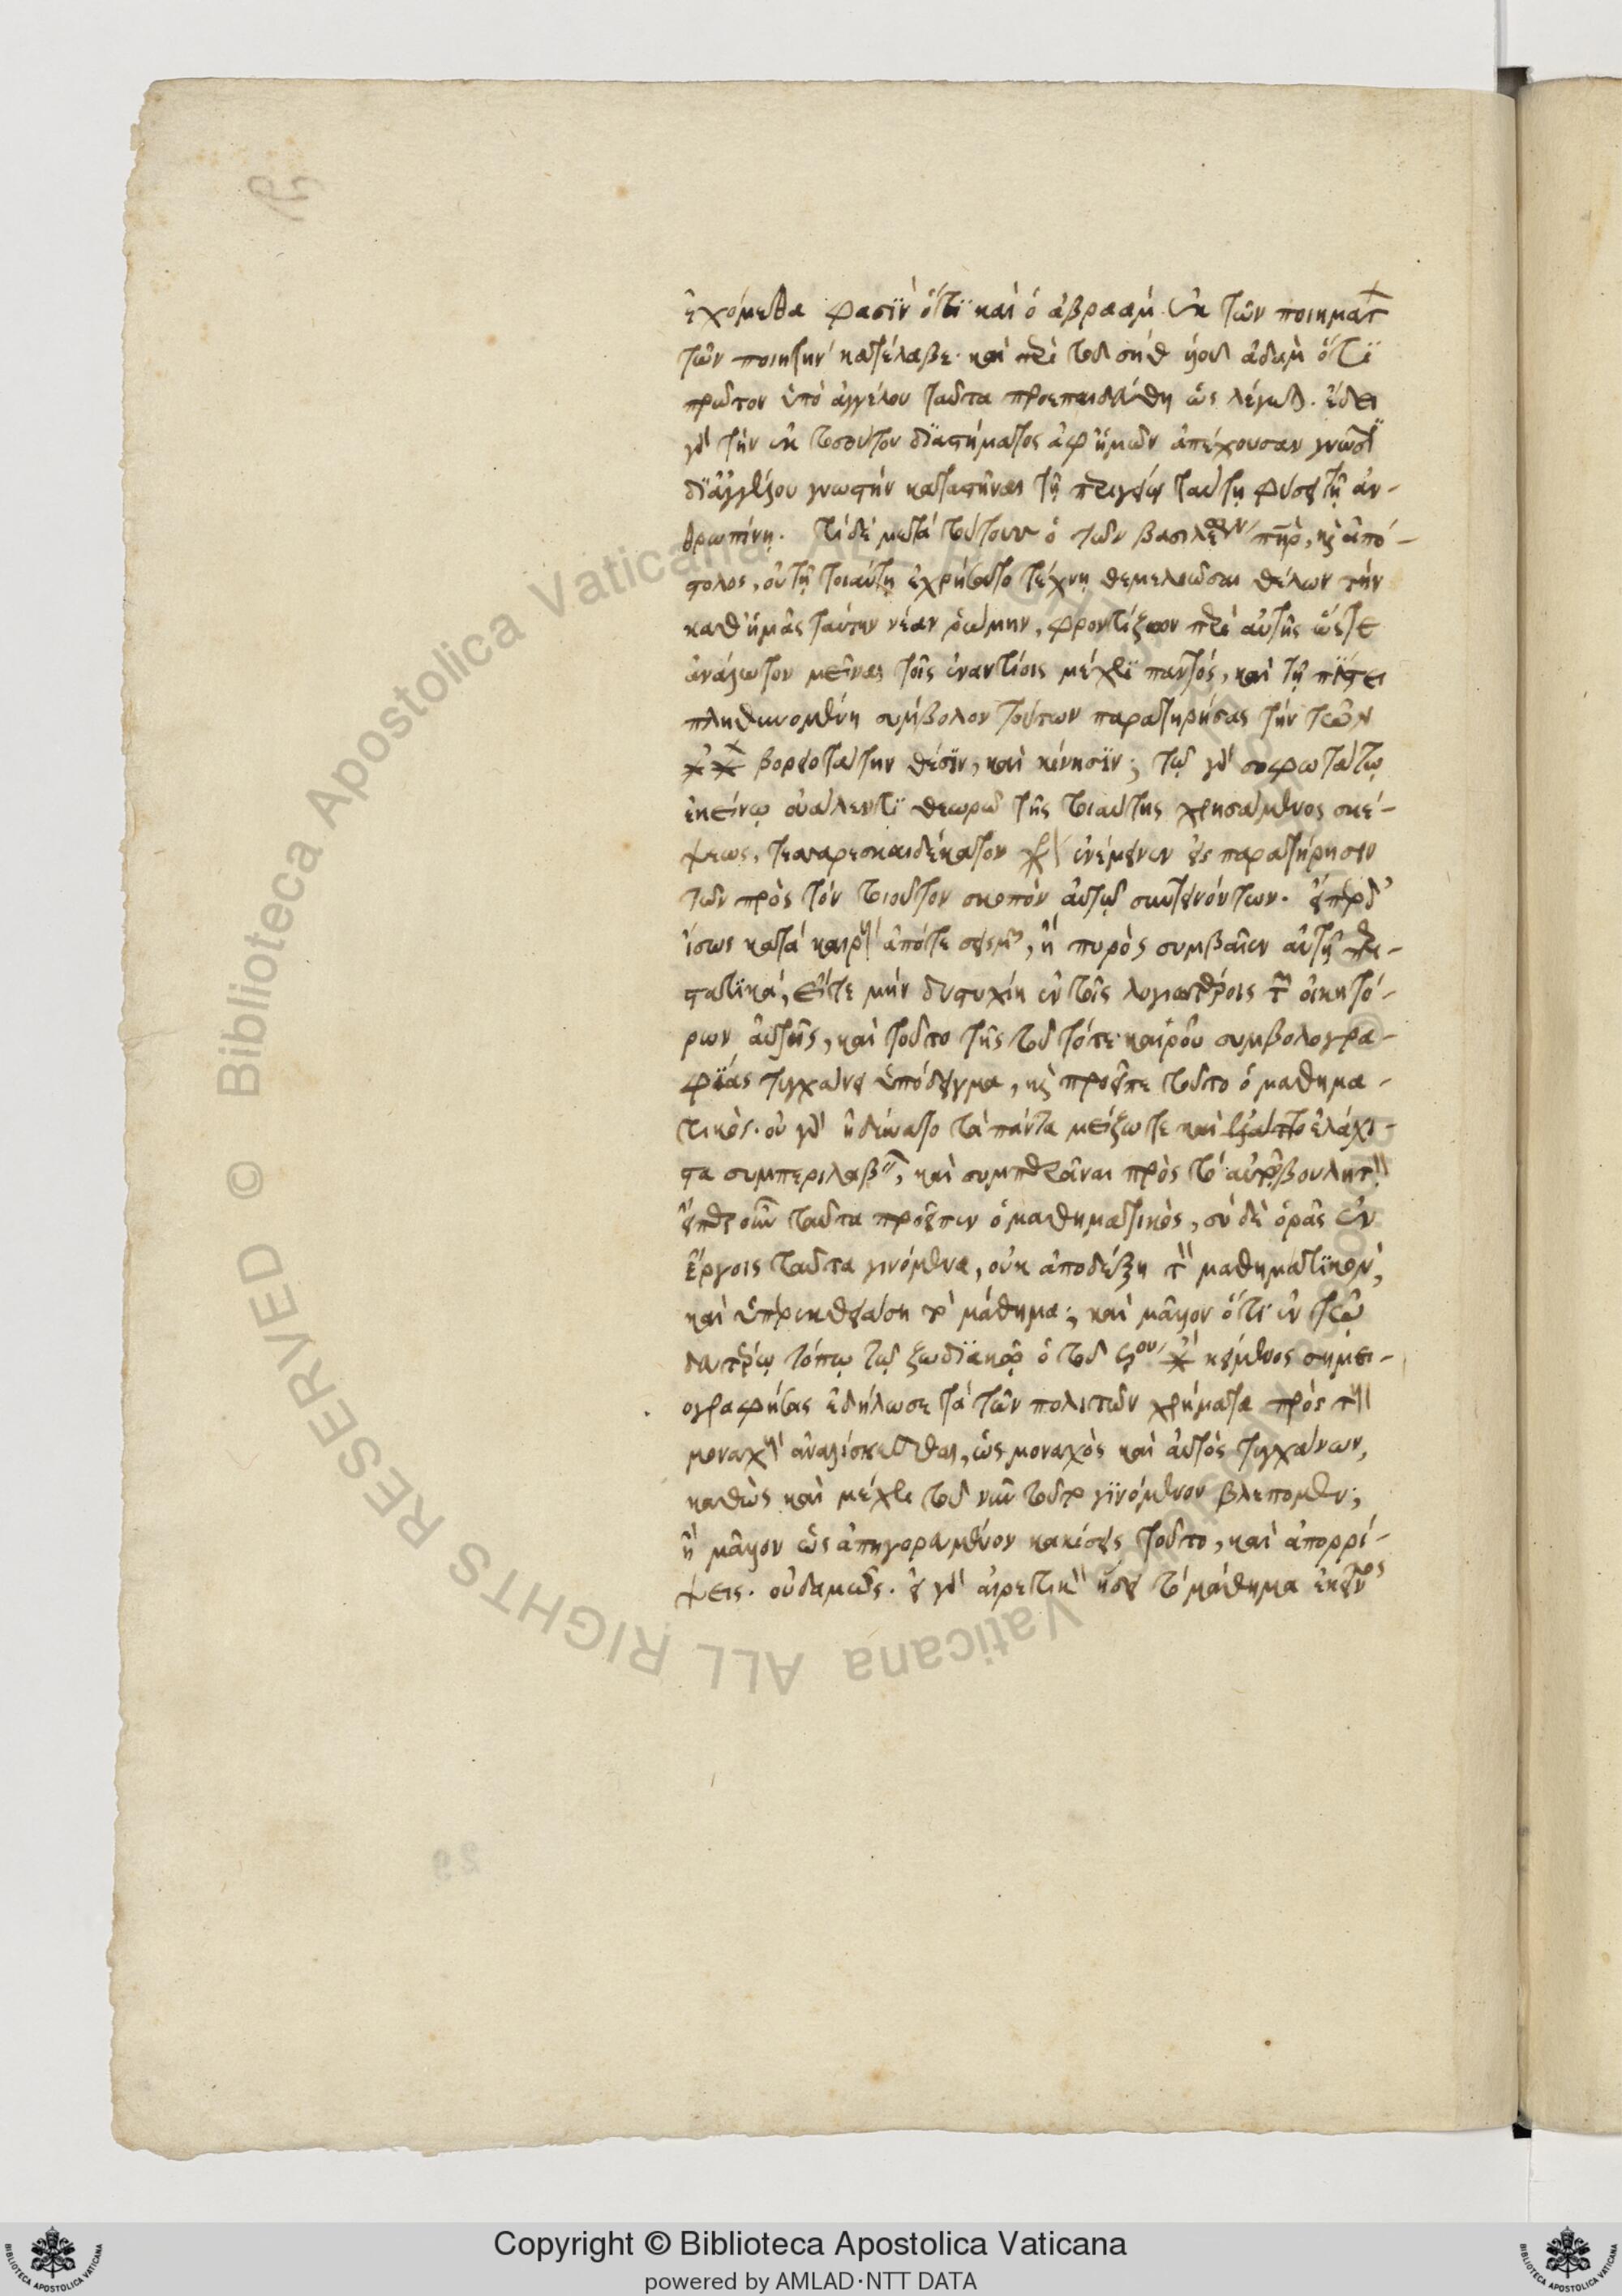 ἐχόμεθα φασῒν ὅτϊ καὶ ὁ ἀβραὰμ ἐκ τῶν ποιημάτ
τῶν ποιητὴν κατέλαβε· καὶ περὶ τοῦ σὴθ υἱοῦ ἀδὰμ ὅτϊ
πρῶτον ὑπὸ ἀγγέλου ταῦτα προεπαιδεύθη ὡς λέγου. ἔδει
γὰρ τὴν ἐκ τοσούτου διαστήματος ἀφ' ἡμῶν ἀπέχουσαν γνῶσϊ
δϊ' ἀγγέλου γνωστὴν καταστῆναι τῇ περιγείῳ ταύτῃ φύσει τῇ ἀν-
θρωπίνῃ. τί δὲ μετὰ τούτου ὁ τῶν βασιλέων πηρ, καὶ ἀπό-
στολος, οὐ τῇ τοιαύτῃ ἐχρήσατο τέχνῃ θεμελιῶσαι θέλων τὴν
καθ' ἡμᾶς ταύτην νέαν ῥώμην, φροντίζων περὶ αὐτῆς ὥστε
ἀνάλωτον μεῖναι τοῖς ἐναντίοις μέχρϊ παντός, καὶ τῇ πίστει
πληθυνομένη σύμβολον τούτων παρατηρήσας τὴν τῶν
βορειοτάτην θέσιν, καὶ κίνησιν; τῷ γὰρ σοφωτάτῳ
ἐκείνῳ οὐάλεντϊ θεωρῷ τῆς τοιαύτης χρησάμενος σκέ-
ψεως, τεσσαρεσκαιδέκατον ἐνέμεινεν εἰς παρατήρησιν
τῶν πρὸς τὸν τοιοῦτον σκοπὸν αὐτῷ συντεινόντων. εἴπερ δ'
ἴσως κατὰ καιρ ἀπό τε σεισμ, ἢ πυρὸς συμβαῖεν αὐτῇ περι-
στατϊκά, εἴτε μὴν δυστυχίη ἐν τοῖς λογιωτέροις τ οἰκητό-
ρων αὐτῆς, καὶ τοῦτο τῆς τοῦ τότε καιροῦ συμβολογρα-
φΐας τυγχάνει ὑπόδειγμα, καὶ προεῖπε τοῦτο ὁ μαθημα-
τικός. οὐ γὰρ ἠδύνατο τὰ πάντα μείζω τε καὶ ἐλάχι-
στα συμπεριλαβ, καὶ συμπερᾶναι πρὸς τὸ αὐτ βουλητ
εἴπερ οὖν ταῦτα προεῖπεν ὁ μαθηματικός, σὺ δὲ ὁρᾷς ἐν
ἔργοις ταῦτα γινόμενα, οὐκ ἀποδέξῃ τ μαθηματϊκὸν,
καὶ ὑπερεκθειάσῃ τὸ μάθημα; καὶ μᾶλλον ὅτι ἐν τῷ
δευτέρῳ τόπῳ τῷ ζωδϊακῷ ὁ τοῦ κείμενος σημει-
ογραφήσας ἐδήλωσε τὰ τῶν πολιτῶν χρήματα πρὸς τ
μοναχ ἀναλίσκεσθαι, ὡς μοναχὸς καὶ αὐτὸς τυγχάνων,
καθὼς καὶ μέχρι τοῦ νῦν τοῦτο γϊνόμενον βλέπομεν;
ἢ μᾶλλον ὡς ἀπηγορευμένον κακίσεις τοῦτο, καὶ ἀπορρί-
ψεις. οὐδαμῶς. εἰ γὰρ αἱρετικ ᾔδει τὸ μάθημα ἐκεῖνος